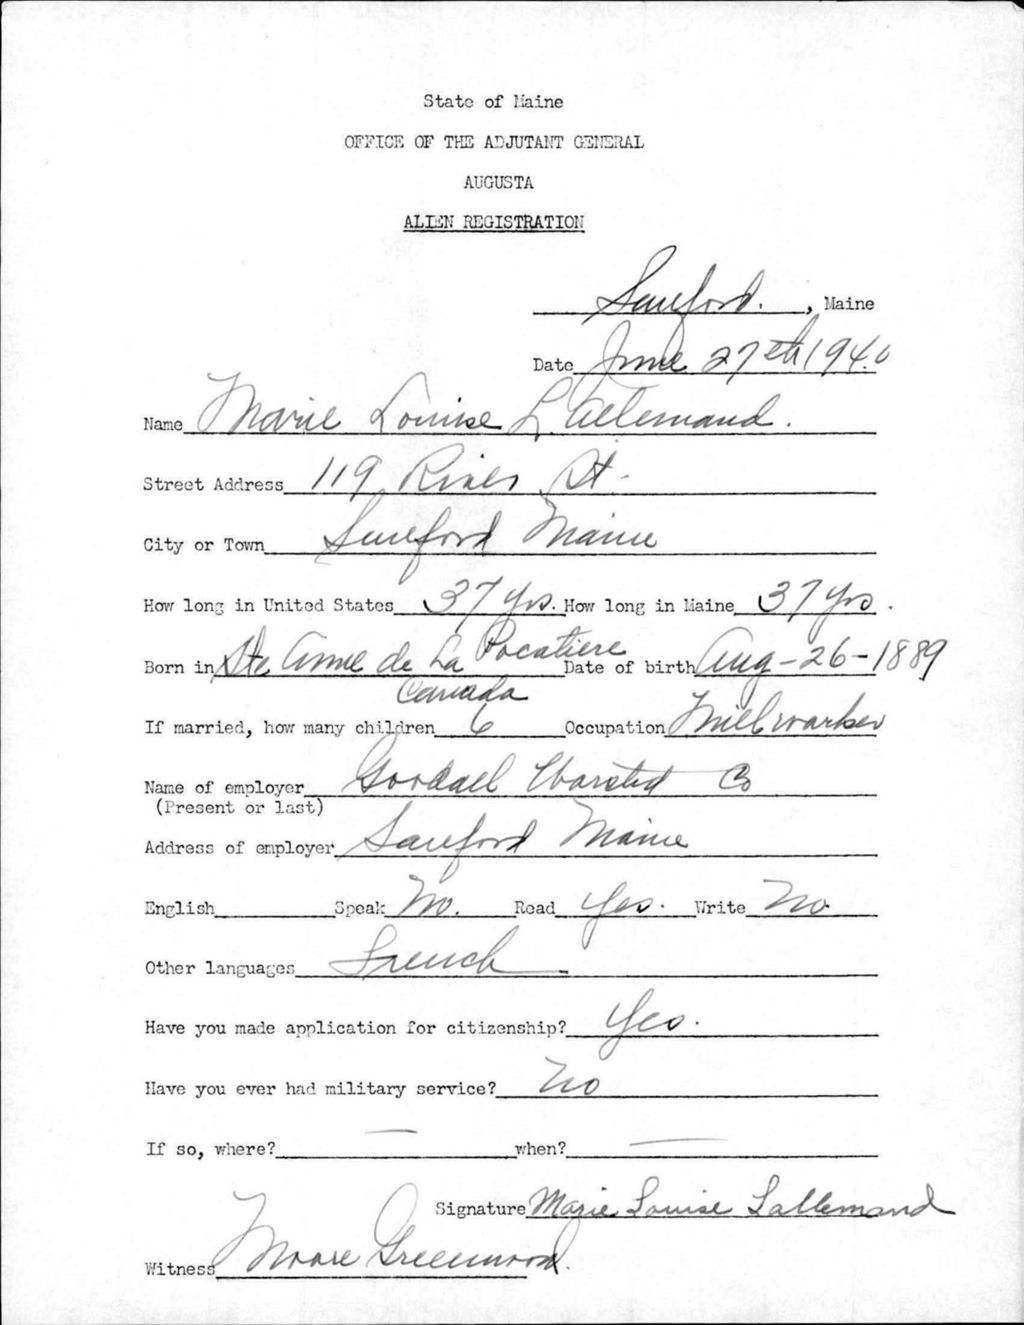 State of Maine
OFFICE OF THE ADJUTANT GENERAL
AUGUSTA
ALIEN REGISTRATION
Sanford. , Maine
Date June 27th 1940
Name Marie Louise L'Allemand.
Street Address 119 River St.
City or Town Sanford Maine
How long in United States 37 yrs. How long in Maine 37 yrs.
Born in Ste Anne de La Pocatiere Date of birth Aug-26-1889
Canada
If married, how many children 6 Occupation Millworker
Name of employer Goodall Worsted Co
(Present or last)
Address of employer Sanford Maine
English Speak No. Read Yes. Write No
Other languages French
Have you made application for citizenship? Yes.
Have you ever had military service? No
If so, where? — when? —
Signature Marie Louise Lallemand
Witness Moore Greenwood.